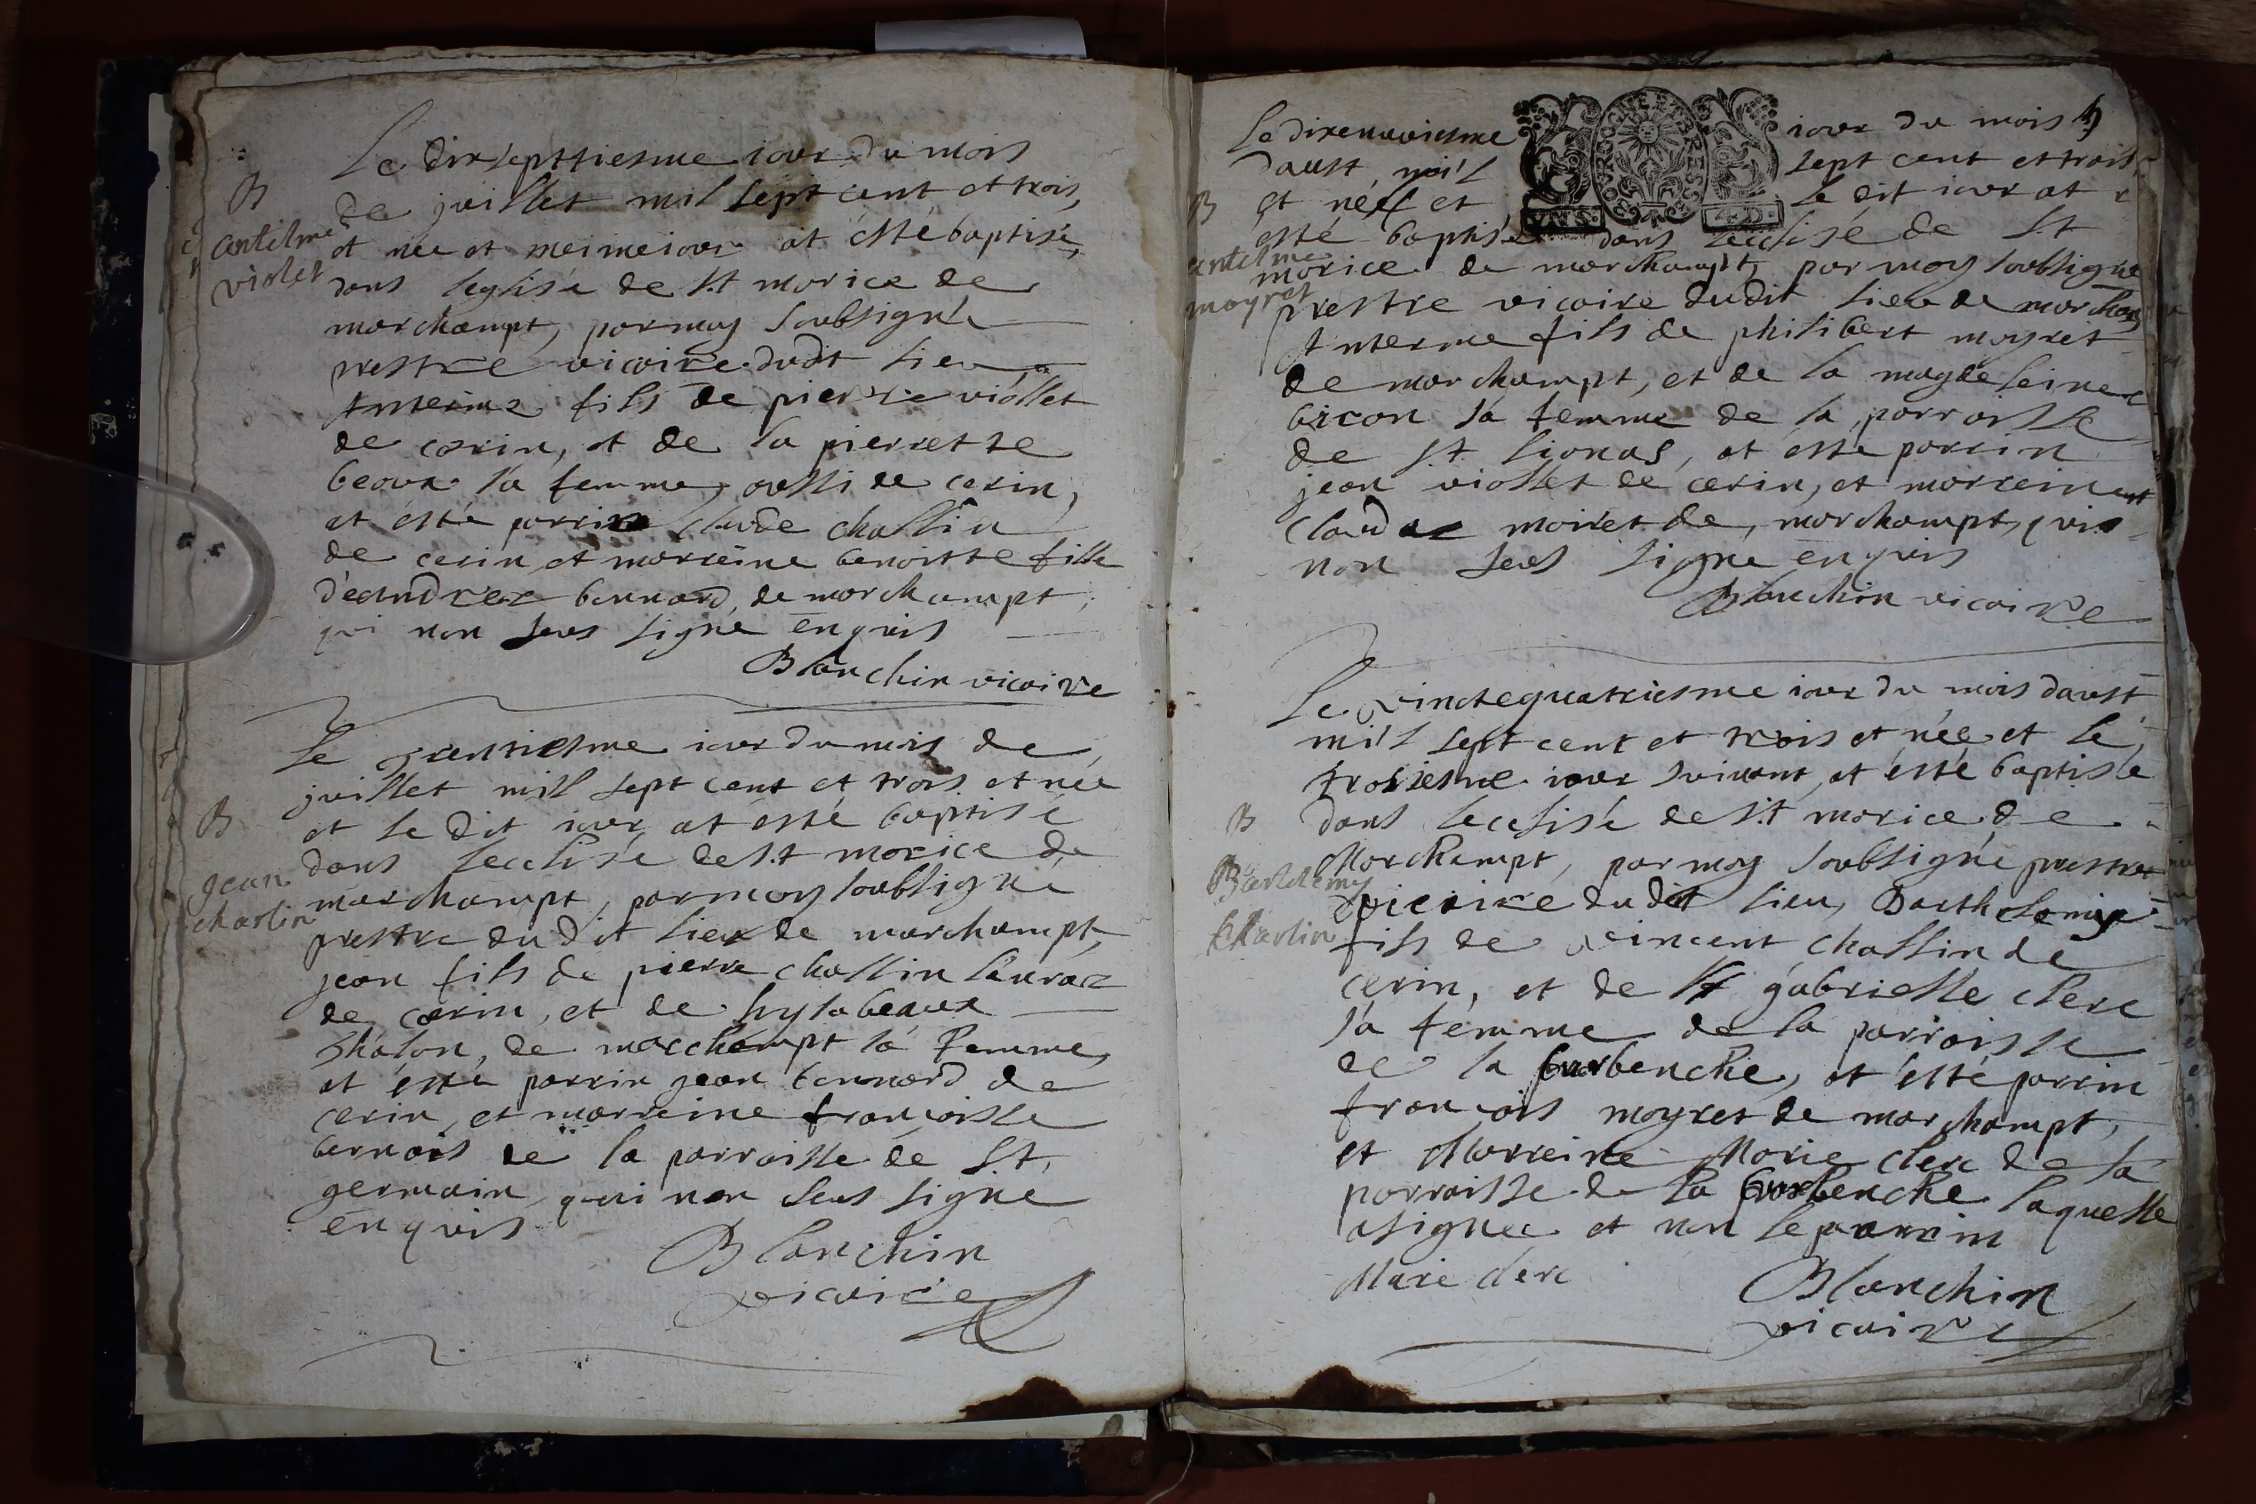 Le dixsepttiesme iour du mois
de juillet mil sept cent et trois,
B
antelme
violet
et née et mesmeiour at ésté baptisé,
dans léglisé de S.t morice de
marchampt, par moy soubsigné
prestre vicaire dudit lieu
Anterme fils de pierre viollet
de cerin, et de la pierrette
beoux sa femme, aussi de cerin,
at esté parrin claude chassin
de cerin et marreine benoitte fille
d'eandrez bonnard, de marchampt,
qui non seus signe enquis
Blanchin vicaire
Le trentiesme iour du mois de
juillet mill sept cent et trois et née
B
et le dit iour at ésté baptisé
dans lecclisé de S.t morice de
jean
charlin
marchampt, par moy soubsigné
prestre du dit lieu de marchampt,
jean fils de pierre chassin
de cerin, et de hysabeaux
chalon, de marchampt sa femme,
at esté parrin jean bonnard de
cerin, et marreine françoisse
bernois de la parroisse de S.t
germain qui non seus signe
enquis
Blanchin
vicaire
Le dixenuviesme iour du mois
daust, mil sept cent et trois,
B
et née et le dit iour at
esté baptisé dans lecclisé de S.t
antelme
moyret
morice de marchampt, par moy soubsigné
prestre vicaire dudit lieu de
Anterme fils de philibert moyret
de marchampt, et de la magdeleine
bicon sa femme de la parroisse
de S.t, at este parrin
jean viollet de cerin, et marreine
claudaz moiret de, marchampt, qui
non seus signe enquis
Blanchin vicaire
Le vinctequatriesme iour du mois daust
mil sept cent et trois et née et le
troisiesme iour suivant, at ésté baptisse
B
dans lecclisé de S.t morice de
Barthelemy
charlin
Marchampt, par moy soubsigné prestre
vicaire du dit lieu, Barthelemis
fils de vincent chassin de
cerin, et de gabrielle clerc
sa femme de la parroisse
de la burbenche, at ésté parrin
francois moyret de marchampt,
et Marreine Marie clerc de la
parroisse de la burbenche laquelle
asignee et non le parrin
Marie clerc
Blanchin
vicaire